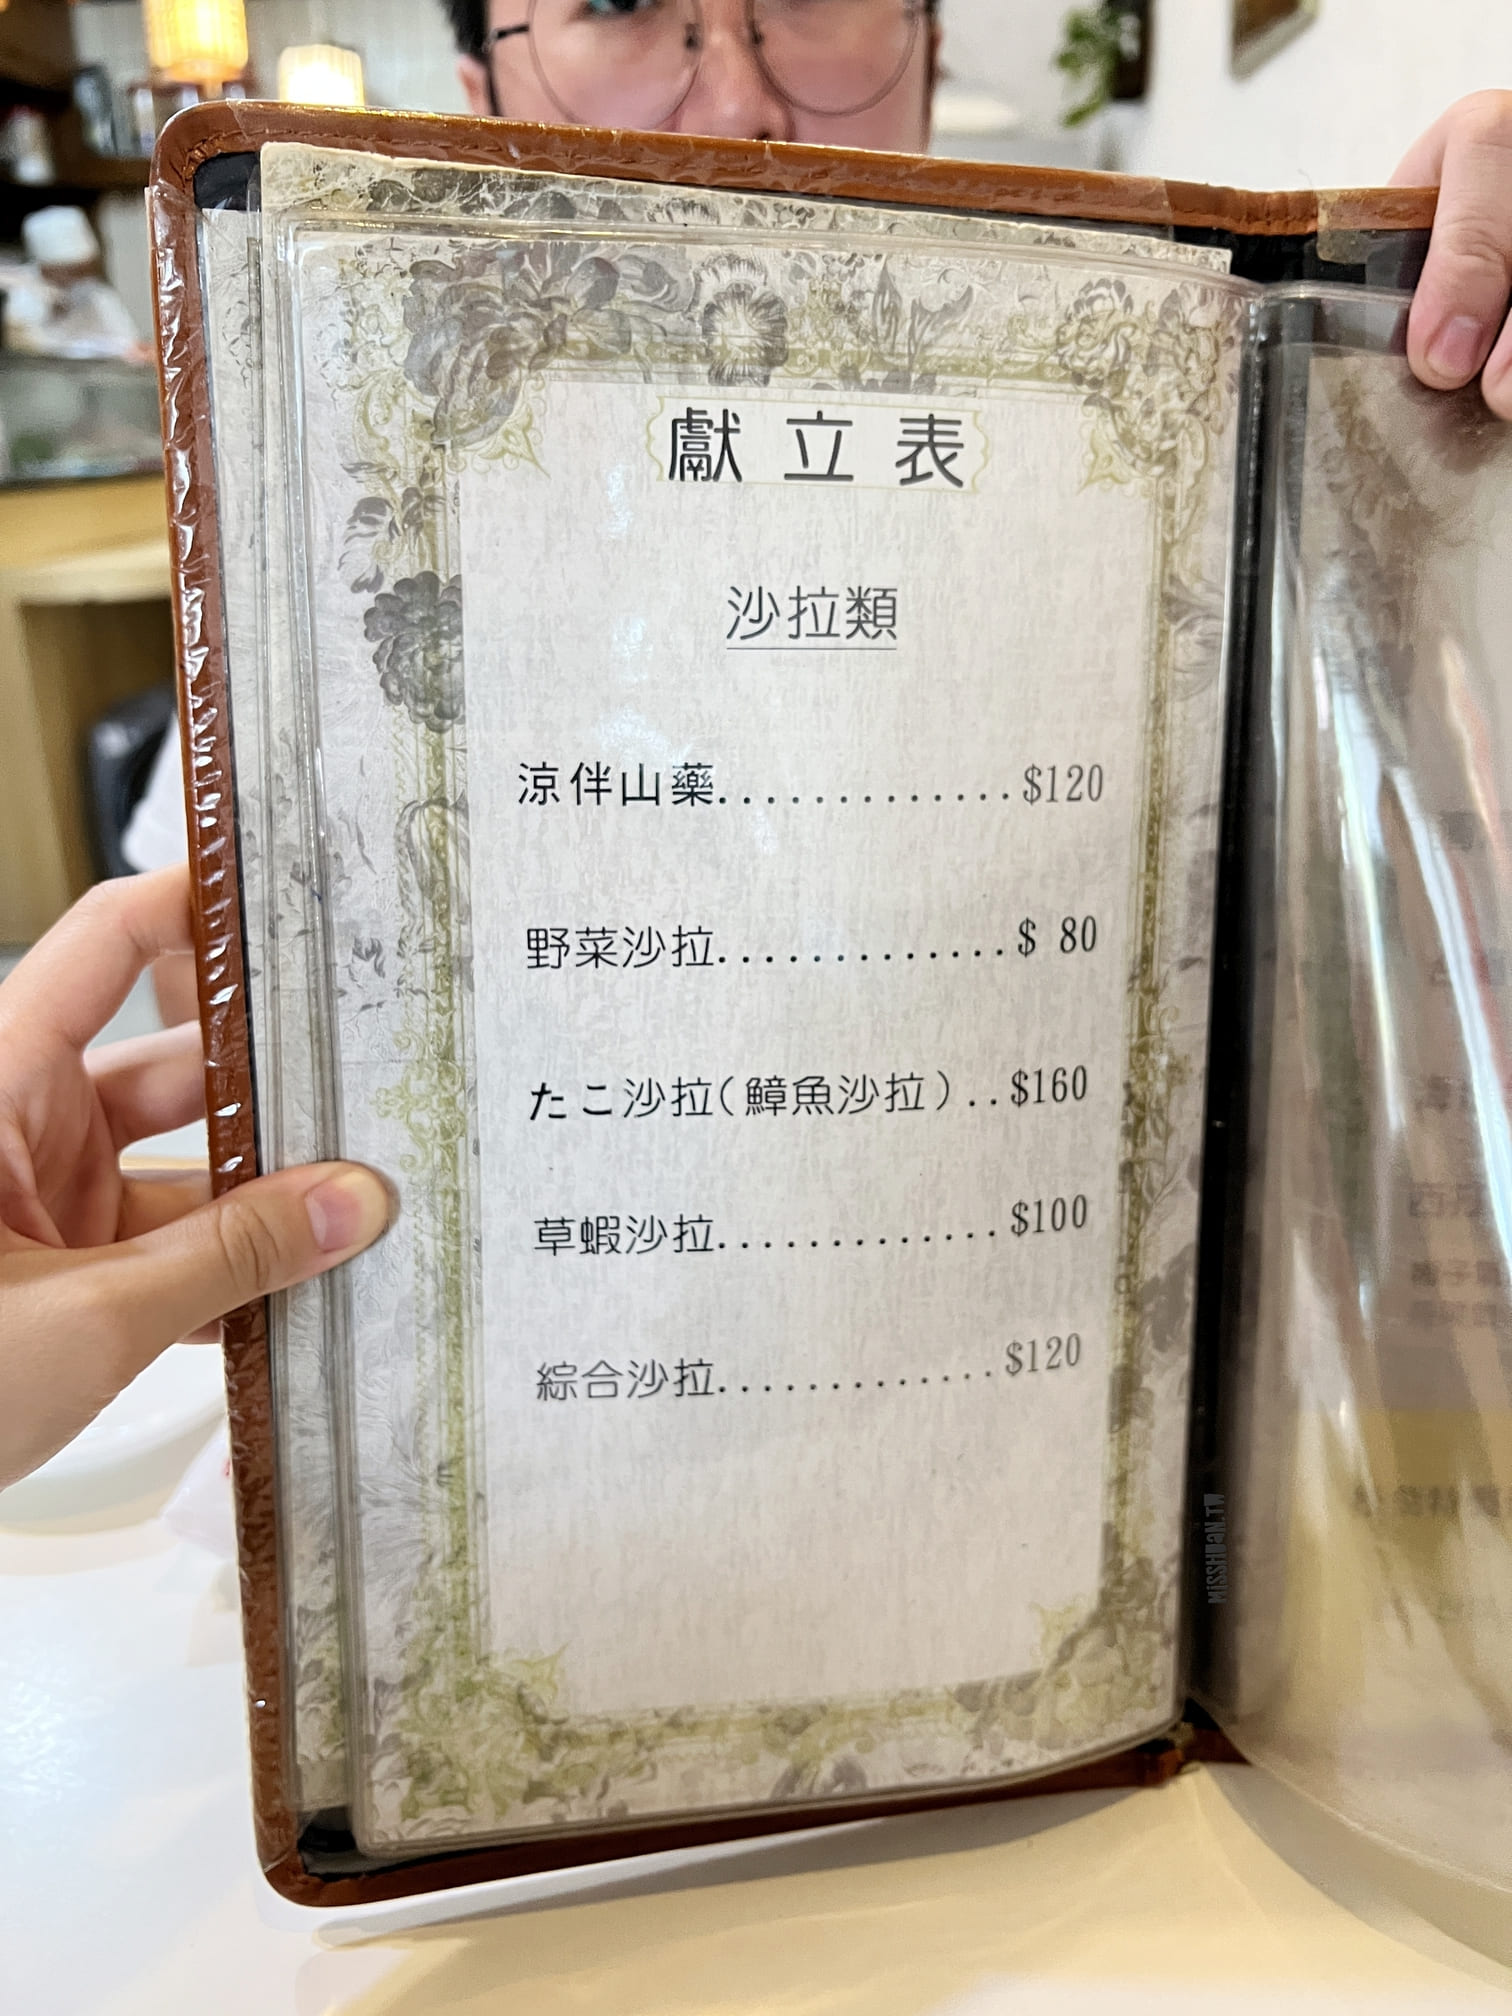 獻立表
沙拉類
涼伴山藥.............$120
野菜沙拉.............$ 80
たこ沙拉(鱆魚沙拉)..$160
草蝦沙拉.............$100
綜合沙拉.............$120
MiSSHUAN.TW